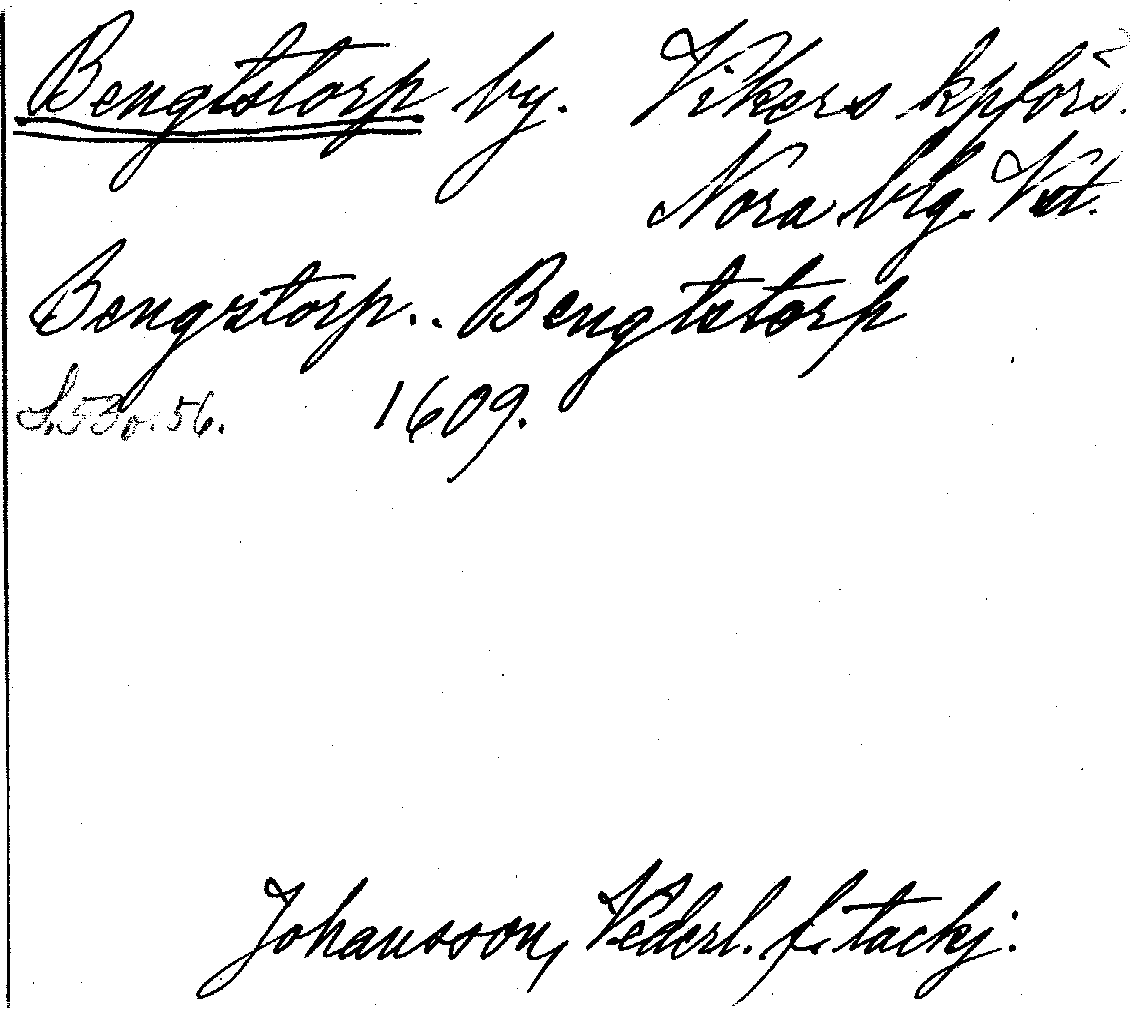 Bengtstorp by. Vikers kpförs.
Nora blg. Vst.
Bengstorp.. Bengtstorp
S. 53 o. 56. 1609.
Johansson, Vederl. f. tackj: